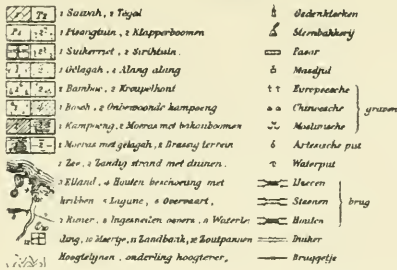 1 Sawah, 2 Tegal
1 Pisangtuin, 2 Klapperboomen
1 Suikerriet, 2 Sirihtuin.
1 Gelagah, 2 Alang alang
1 Bamboe, 2 Kreupelhout
1 Bosch, 2 Onbewoonde kampoeng
1 Kampoeng, 2 Moeras met bakouboomen
1 Moeras met gelagah, 2 Drassig terrein
1 Zee, 2 Zandig strand met duinen,
3 Eiland, 4 Houten beschoeiing met
kribben 5 Lagune, 6 Overvaart,
7 Rivier, 8 Ingesneden oevers, 9 Waterlei
ding, 10 Meertje, 11 Zandbank, 12 Zoutpannen
Hoogtelijnen, onderling hoogtever.
Gedenkteeken
Steenbakkerij
Pasar
Masdjid
Europeesche
Chineesche
Moslimsche
graven
Artesische put
Waterput
IJzeren
Steenen
Houten
brug
Duiker
Bruggetje